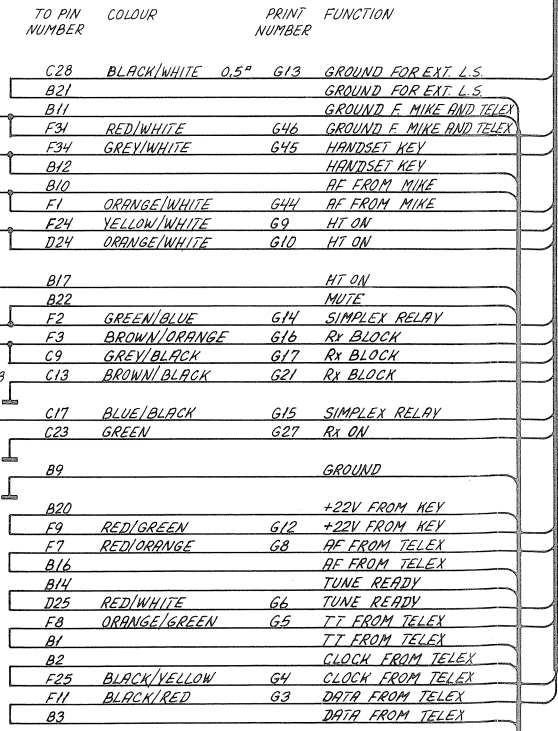 TO PIN COLOUR PRINT FUNCTION
NUMBER NUMBER
C28 BLACK/WHITE 0,5□ G13 GROUND FOR EXT. L.S.
B21 GROUND FOR EXT. L.S.
B11 GROUND F. MIKE AND TELEX
F31 RED/WHITE G46 GROUND F. MIKE AND TELEX
F34 GREY/WHITE G45 HANDSET KEY
B12 HANDSET KEY
B10 AF FROM MIKE
F1 ORANGE/WHITE G44 AF FROM MIKE
F24 YELLOW/WHITE G9 HT ON
D24 ORANGE/WHITE G10 HT ON
B17 HT ON
B22 MUTE
F2 GREEN/BLUE G14 SIMPLEX RELAY
F3 BROWN/ORANGE G16 Rx BLOCK
C9 GREY/BLACK G17 Rx BLOCK
C13 BROWN/BLACK G21 Rx BLOCK
C17 BLUE/BLACK G15 SIMPLEX RELAY
C23 GREEN G27 Rx ON
B9 GROUND
B20 +22V FROM KEY
F9 RED/GREEN G12 +22V FROM KEY
F7 RED/ORANGE G8 AF FROM TELEX
B16 AF FROM TELEX
B14 TUNE READY
D25 RED/WHITE G6 TUNE READY
F8 ORANGE/GREEN G5 TT FROM TELEX
B1 TT FROM TELEX
B2 CLOCK FROM TELEX
F25 BLACK/YELLOW G4 CLOCK FROM TELEX
F11 BLACK/RED G3 DATA FROM TELEX
B3 DATA FROM TELEX